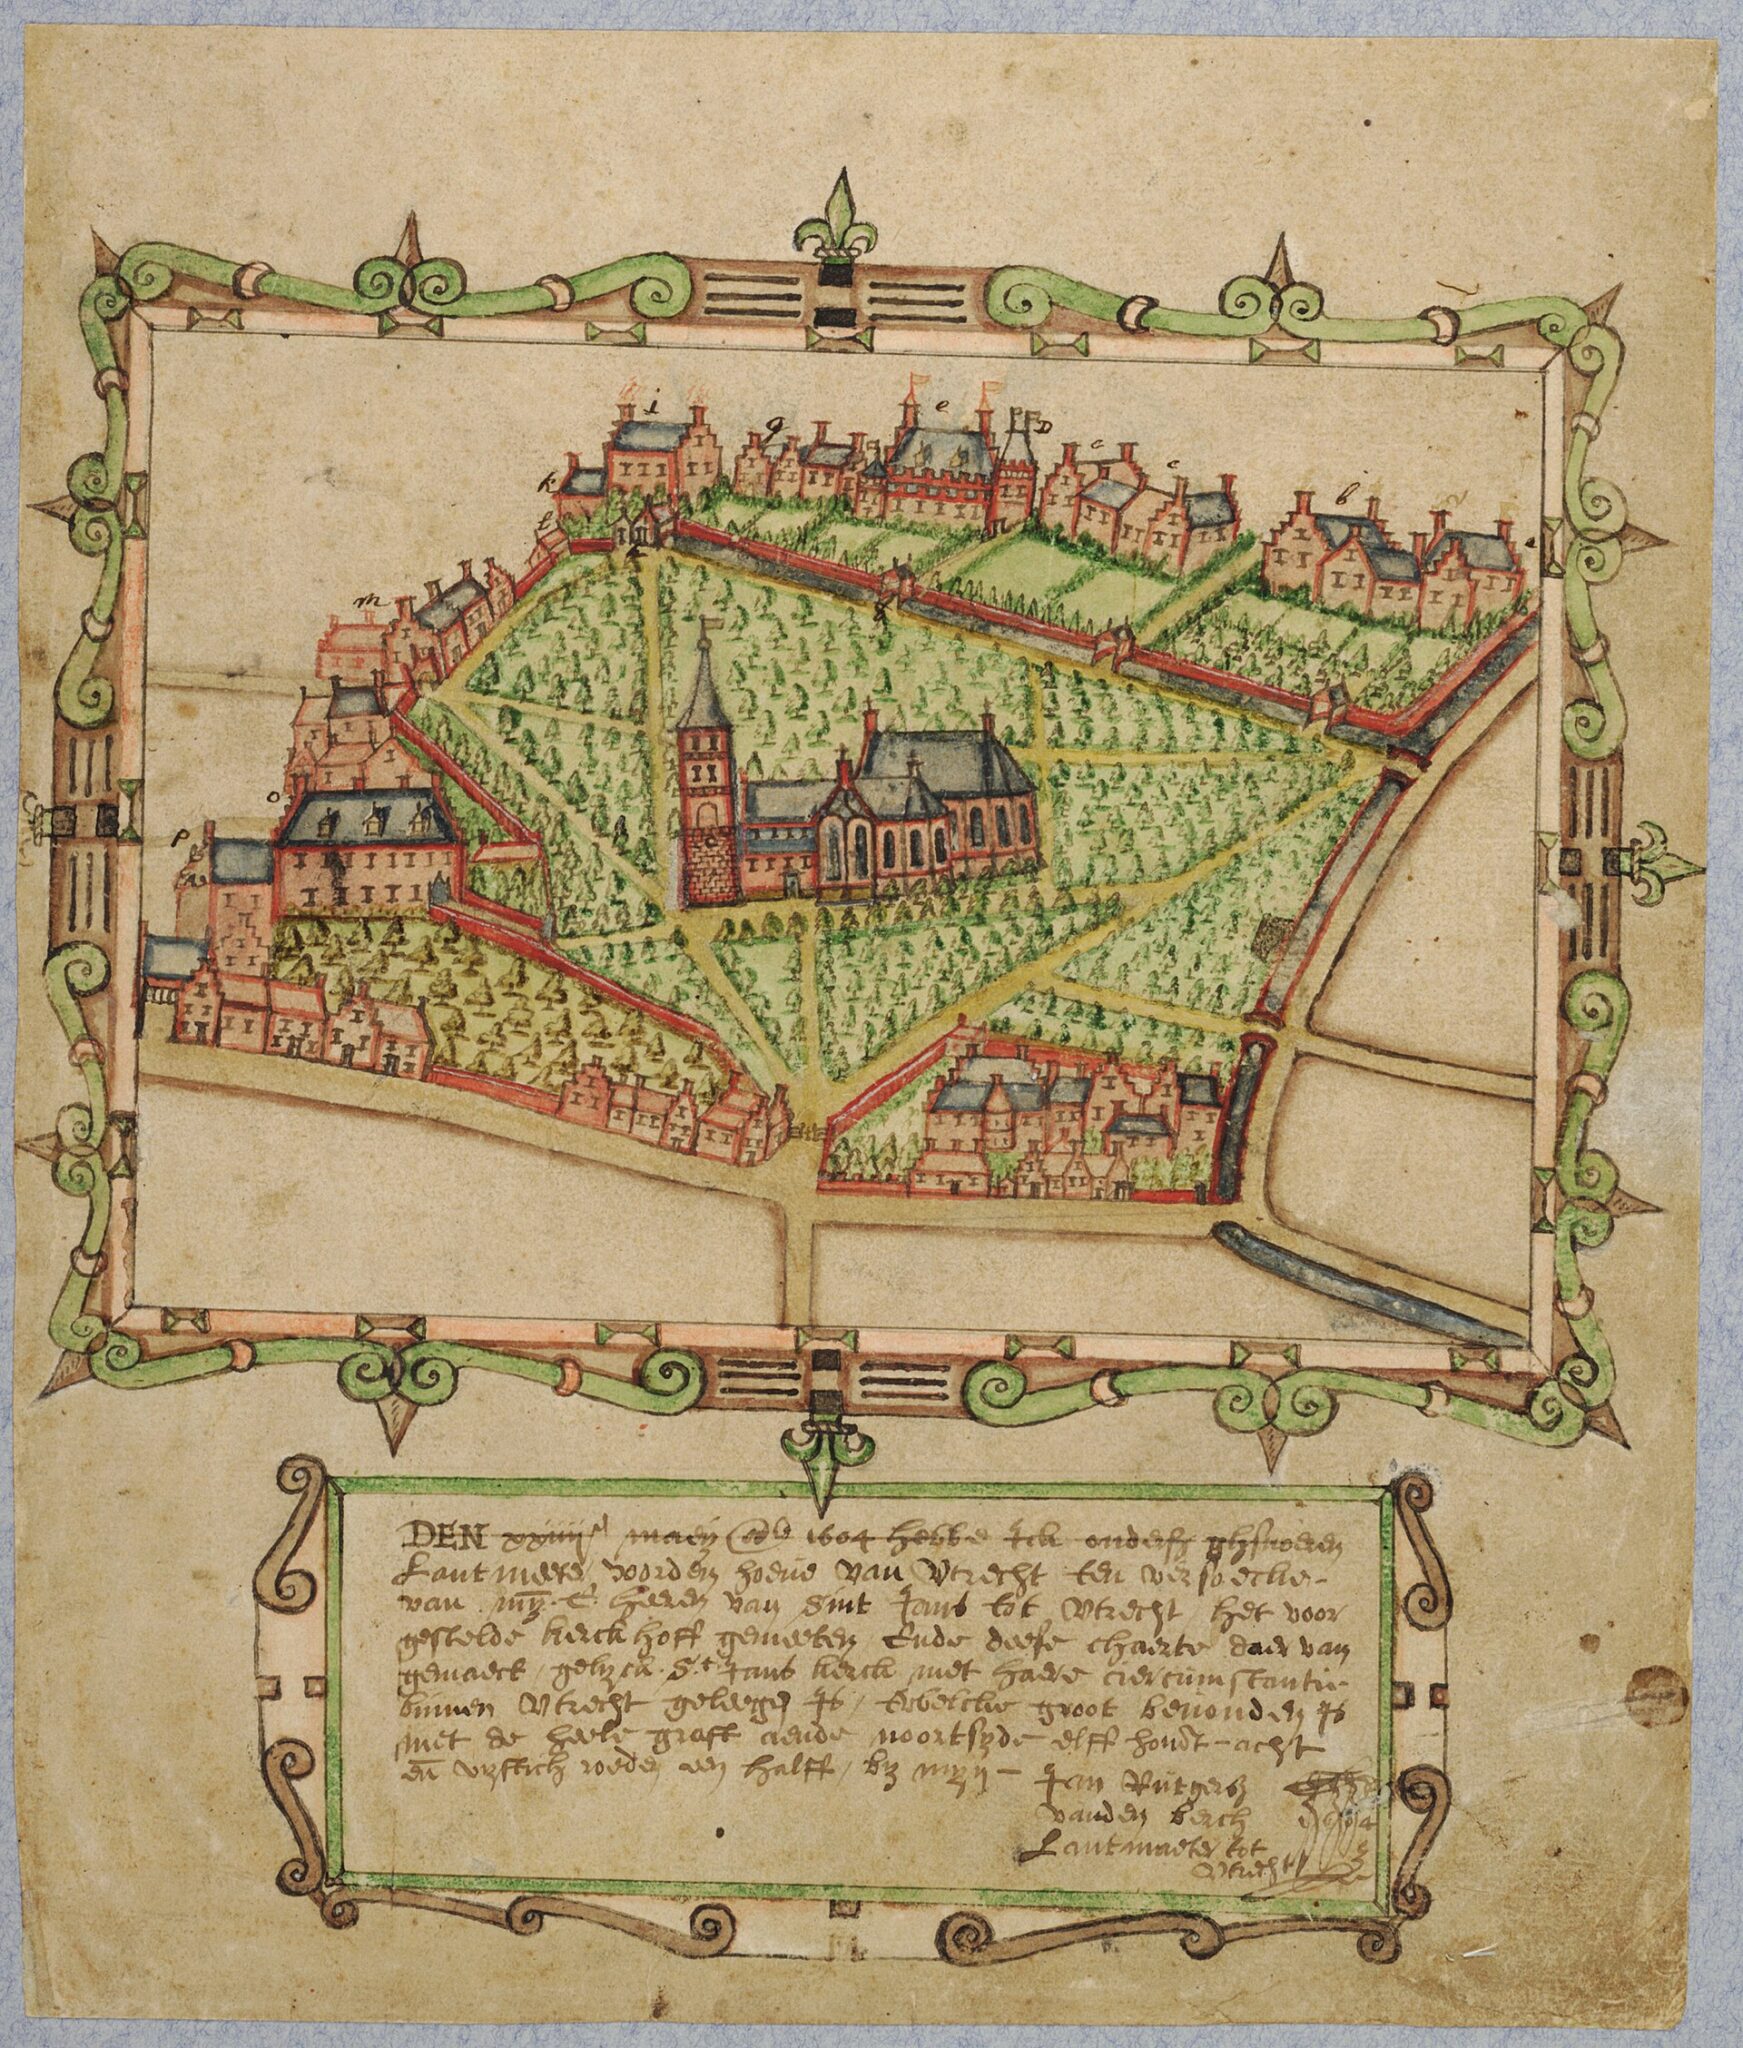 i
e
g
D
c
k
c
b
a
l
m
o
p
DEN xxiiii maey 1604 hebbe Ick onders
Lantmeeter sorden hoeue van Vtrecht ten versoecke
van E heeren van Sint Jans tot Vtrecht, het voor
gestelde kerckhoff gemeeten, Ende deese chaerte daer van
gemaeckt, gelyck St Jans kerck met haere circumstantie
binnen Vtrecht geleegen Is, groot beuonden Is
met de heele graft aende noortsyde elff hondt acht
en vyftich roeden een halff, by myn Jan Rutgersz
vanden Berch 1604
Lantmeeter tot
Vtrecht